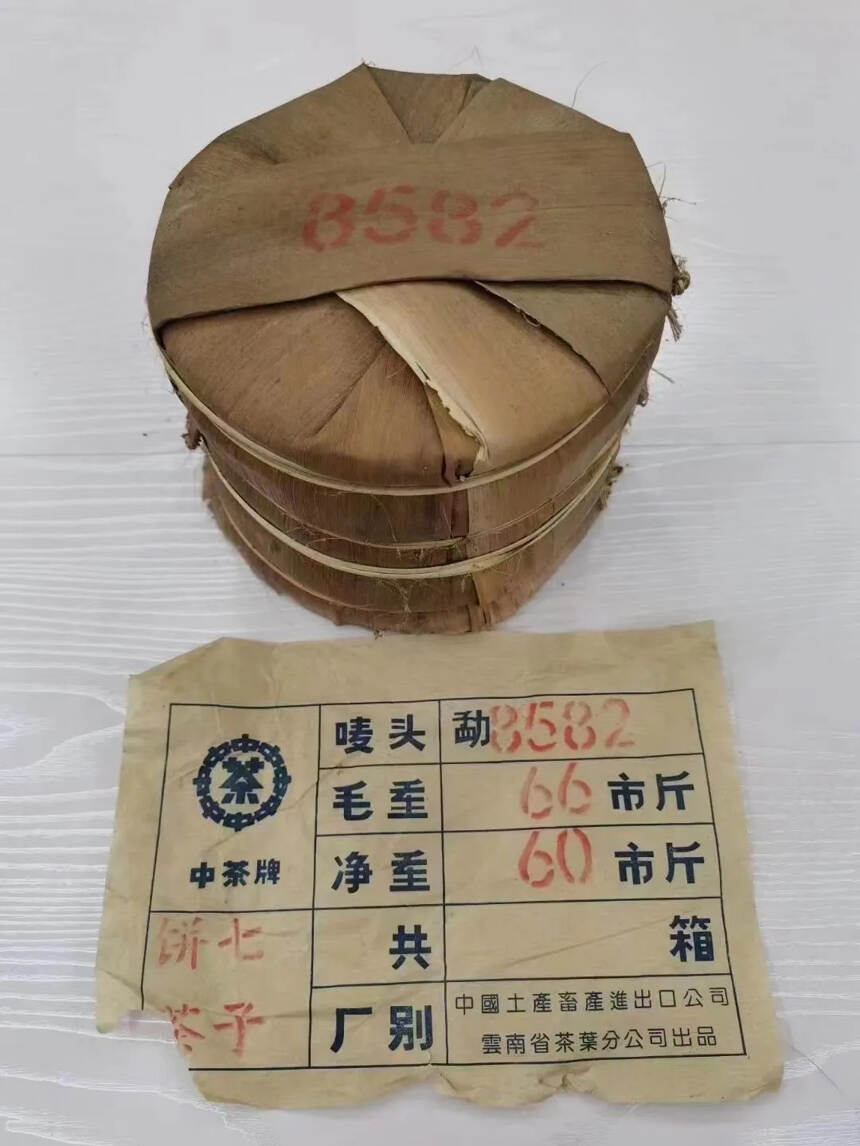 8582
唛头 勐8582
茶
中茶牌
毛重 66市斤
净重 60市斤
七子
饼茶
共 箱
厂别
中國土產畜產進出口公司
雲南省茶葉分公司出品